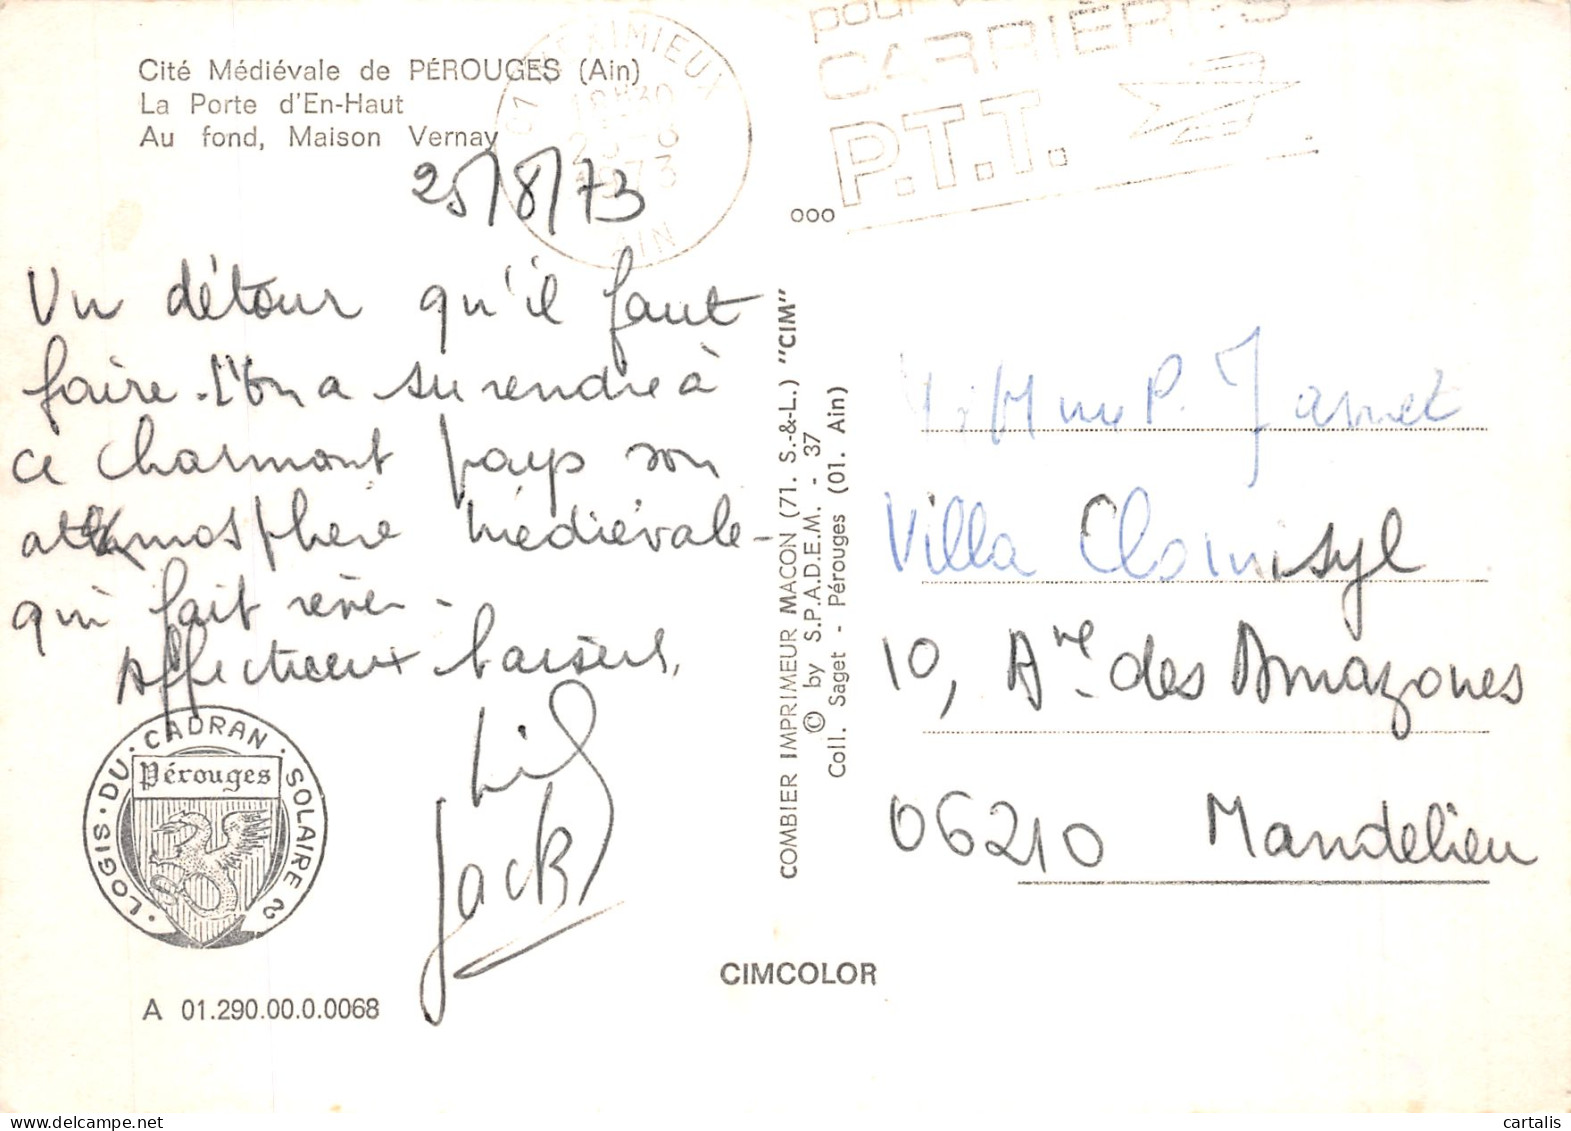 Cité Médiévale de PÉROUGES (Ain)
La Porte d'En-Haut
Au fond, Maison Vernay
25/8/73
Un détour qu'il faut
faire. L'on a su rendre à
ce charmant pays son
atmosphère médiévale -
qui fait rêver -
Affectueux baisers,
Jack
LOGIS · DU · CADRAN · SOLAIRE
Pérouges
A 01.290.00.0.0068
01 MEXIMIEUX
18H30
1973
AIN
pour
CARRIÈRES
P.T.T.
000
COMBIER IMPRIMEUR MACON (71. S.-&-L.) "CIM"
© by S.P.A.D.E.M. - 37
Coll. Saget - Pérouges (01. Ain)
CIMCOLOR
Mme P. Jannet
Villa Clomisyl
10, Ave des Amazones
06210 Mandelieu
www.delcampe.net
cartalis